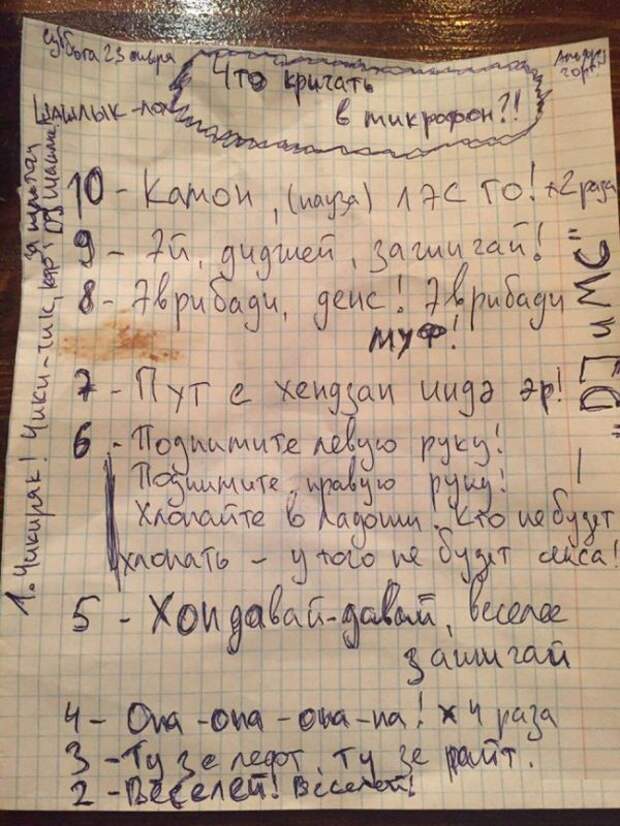 Суббота 23 января
Что кричать
в микрофон?!
ШАШЛЫК-
10 - Камон, (пауза) лэс го! х2 раза
9 - Эй, диджей, зажигай!
8 - Эврибади, денс! Эврибади
мув!
7 - Пут е хендзап ин дэ эр!
6 - Поднимите левую руку!
Поднимите правую руку!
Хлопайте в ладоши. Кто не будет
хлопать - у того не будет секса!
5 - Хоп давай-давай, веселее
зажигай
4 - Опа-опа-опа-па! х4 раза
3 - Ту зе лефт, ту зе райт.
2 - Веселей! Веселей!
1. Чикиряк! Чики-тик,
за пультом
DJ
- "DJ и МС"